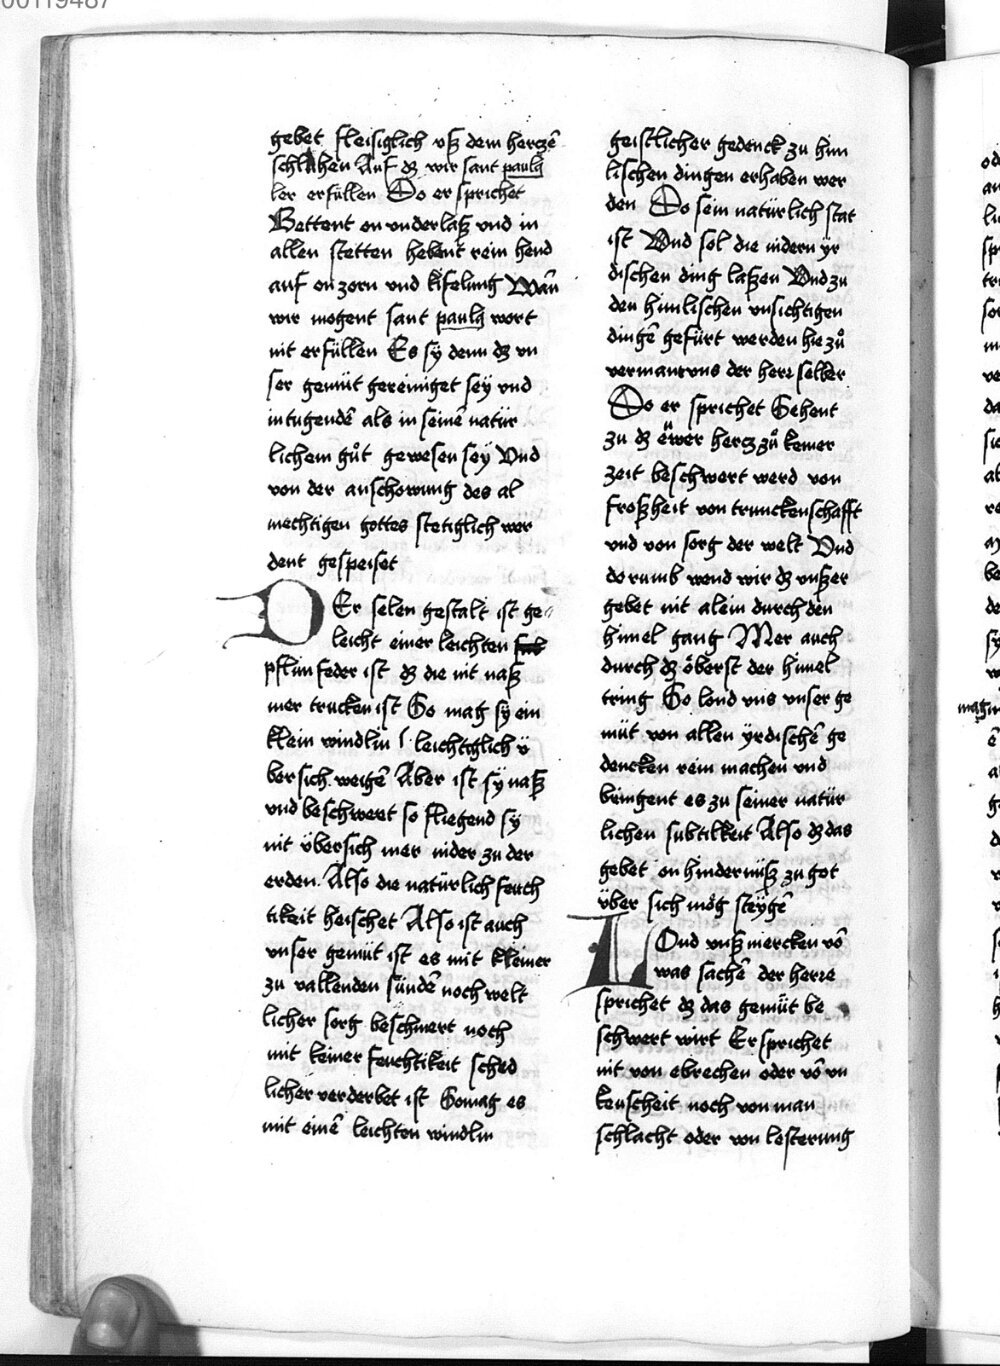 00119487
gebet fleisiglich vß dem herczē
schlahen Auf dz wir sant pauls
ler erfüllen Do er sprichet
Bettent on vnderlaß vnd in
allen stetten hebent rein hend
auf on zorn vnd kifelung Wañ
wir mogent sant pauls wort
nit erfüllen Es sÿ denn dz vn
ser gemüt gereiniget seÿ vnd
in tugendē als in seinē natür
lichem gůt gewesen seÿ Vnd
von der anschowung des al
mechtigen gottes stetiglich wer
dent gespeiset
DEr selen gestalt ist ge
leicht einer leichten
pflūnfeder ist dz die nit naß
mer trucken ist So mag sÿ ein
klein windlin leichtiglich ü
ber sich weigē Aber ist sÿ naß
vnd beschwert so fliegend sÿ
nit übersich mer nider zu der
erden Also die natürlich feuch
tikeit heischet Also ist auch
vnser gemüt ist es mit kleiner
zu vallenden sündē noch welt
licher sorg beschwert noch
mit keiner feuchtikeit sched
licher verderbet ist So mag es
mit einē leichten windlin
geistlicher gedenck zu him
lischen dingen erhaben wer
den Do sein natürlich stat
ist Vnd sol die nidern ÿr
dischen ding laßen Vnd zu
den himlischen vnsichtigen
dingē gefürt werden hie zů
vermant vns der herr selber
Do er sprichet Sehent
zu dz ëwer hercz zů keiner
zeit beschwert werd von
froßheit von trunckenschafft
vnd von sorg der welt Vnd
dorumb wend wir dz vnßer
gebet nit alein durch den
himel gang Mer auch
durch dz öberst der himel
tring So lond vns vnser ge
müt von allen ÿrdischē ge
dencken rein machen vnd
bringent es zu seiner natür
lichen subtilkeit Also dz das
gebet on hindernüß zu got
über sich mög steÿgē
LOnd vnß mercken vō
was sachē der herre
sprichet dz das gemüt be
schwert wirt Er sprichet
nit von ebrechen oder vō vn
keuscheit noch von man
schlacht oder von lesterung